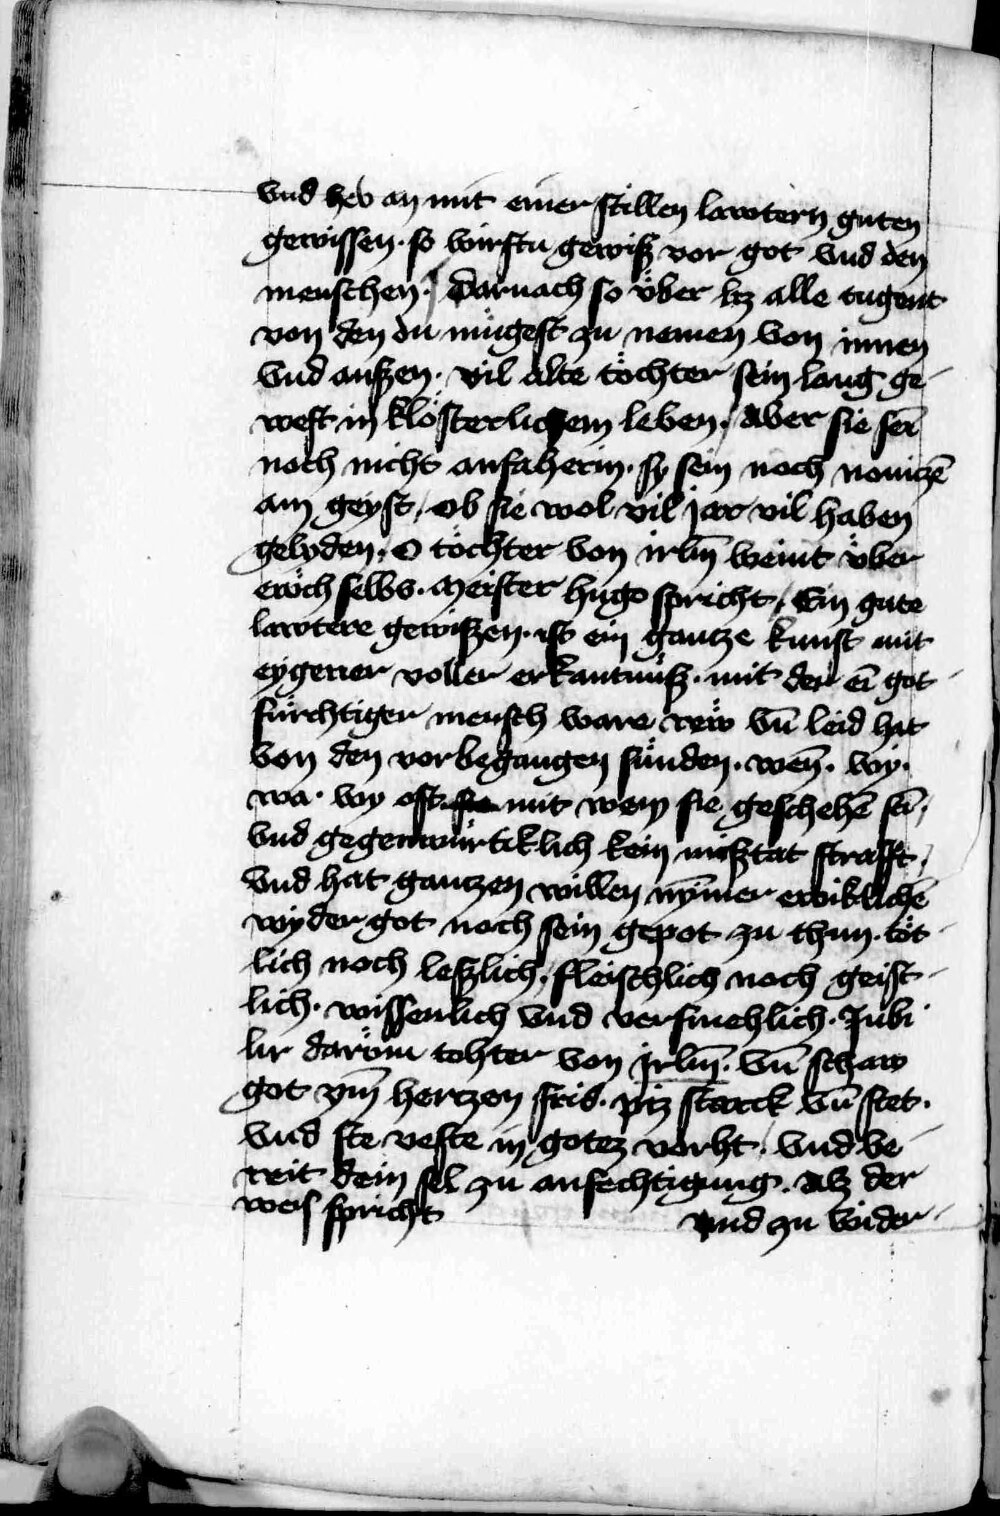 vnd heb an mit einer stillen lawtern guten
gewissen · so wirstu gewiß vor got vnd den
menschen · Darnach so v̈ber bz alle tugent
von den du mügest zu nemen von innen
vnd außen · vil alte töchter sein lang ge-
west in klösterlichem leben · Aber sie sein̄
noch nicht anfaherin · sy sein noch nouiczē
am geyst / ob sie wol vil jar vil haben
gelyden · O töchter von irlm̄ weint v̈ber
ewch selbs · Meister hugo spricht / Ein gute
lawtere gewißen · ist ein gantze kunst mit
eygener voller erkantnüß · mit der ei᷑ got
fürchtiger mensch ware rew vn̄ leid hat
von den vorbegangen sünden · wen̄ · wy ·
wa · wy oft · mit wem sie geschehē sī ·
vnd gegenwürtiklich kein mißtat strafft /
vnd hat gantzen willen nȳmer ewiklichē
wyder got noch sein gepot zu thun · töt
lich noch leßlich / fleischlich noch geist-
lich · wissenlich vnd versmehlich · Jubi
lir daröm tohter von Jrlm̄ · vn̄ schaw
got ym̄ hertzen frid · piz starck vn̄ stet ·
vnd ste veste in gotez vorht / vnd be-
reit dein sel zu anfechtigung · Alz der
weis spricht vnd zu wider-